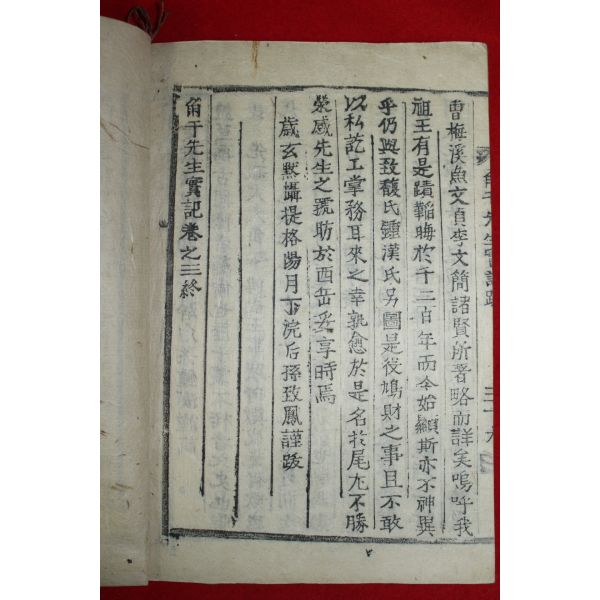 曺梅溪魚文貞李文簡諸賢所著略而詳矣嗚呼我
祖王有是蹟韜晦於千二百年而今始顯斯亦不神異
乎仍與致馥氏鍾漢氏另圖是役鳩財之事且不敢
以私訖工掌務耳來之幸孰愈於是名於尾尤不勝
榮感先生之號昉於西岳妥享時焉
歲玄黙攝提格陽月下浣后孫致鳳謹跋
角干先生實記卷之三終
角干先生實記跋